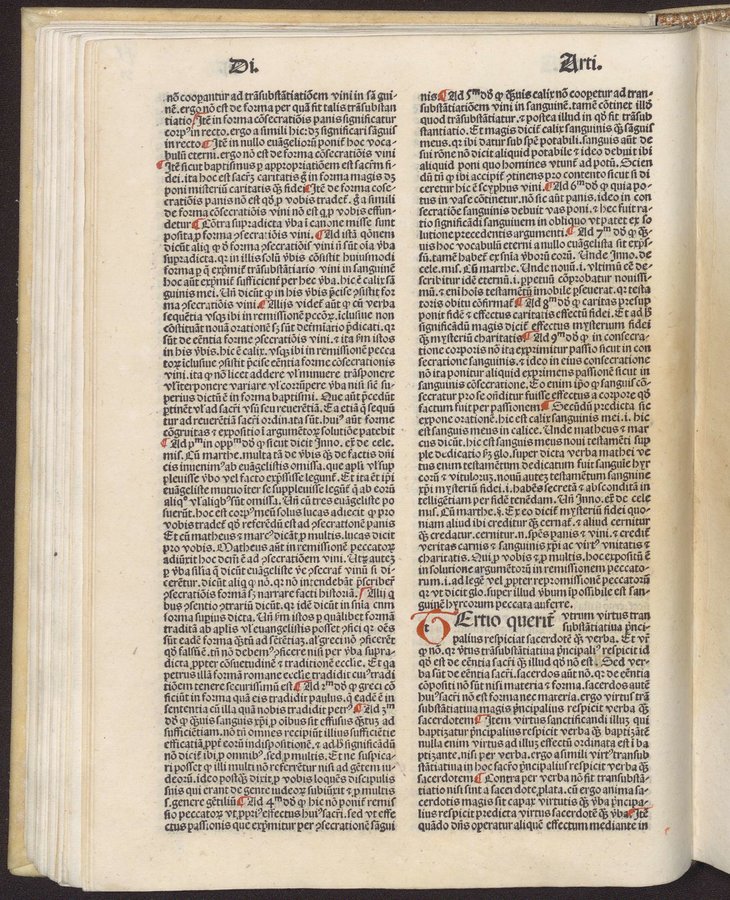 Di.
Arti.
nō coopantur ad trāsubstātiatiōem vini in sā gui-
nē. ergo nō est de forma per quā fit talis trāsubstan
tiatio Itē in forma cōsecratiōis panis significatur
corp9 in recto. ergo a simili hic: dꝫ significari sāguis
in recto Itē in nullo euāgelioꝝ ponit̄ hoc voca-
bulū eterni. ergo nō est de forma cōsecratiōis vini
Itē sicut baptismus ꝑ appropriatiōem est sacrm̄ fi-
dei. ita hoc est sacrꝫ caritatis ḡ in forma magis dꝫ
poni misteriū caritatis ꝙ̄ fidei Itē de forma cōse-
cratiōis panis nō est qd̄ ꝓ vobis tradet̄. ḡ a simili
de forma cōsecratiōis vini nō est qꝫ ꝓ vobis effun-
detur Cōtra supradicta v̄ba ī canone misse sunt
posita ꝓ forma ꝯsecratiōis vini. Ad istā q̄onem
dicūt aliq̄ ꝙ d̄ forma ꝯsecratiōis vini n̄ sūt oīa v̄ba
supradicta. qꝛ in illis solū v̄bis cōsistit huiusmodi
forma ꝑ q̄ exṗmit̄ trāsubstātiatio vini in sanguinē
hoc aūt exṗmit̄ sufficient̄ per hec v̄ba. hic ē calix sā
guinis mei. Vn̄ dicūt ꝙ in his v̄bis ꝑcise ꝯsistit for
ma ꝯsecratiōis vini Alijs videt̄ aūt ꝙ cū verba
sequētia vsqꝫ ibi in remissionē peccōꝝ. iclusiue non
cōstituāt nouā orationē sꝫ sūt det̄minatio p̄dicati. qꝛ
sūt de eēntia forme ꝯsecratiōis vini. ⁊ ita ṽm istos
in his v̄bis. hic ē calix. vsqꝫ ibi in remissionē pecca
toꝝ iclusiue ꝯsistit p̄cise eēntia forme cōsecrationis
vini. ita ꝙ nō licet addere vl̄ minuere trāsponere
vl̄ interponere variare vl̄ corrūpere v̄ba nisi sic̄ su-
perius dictū ē in forma baptismi. Que aūt p̄cedūt
ꝑtinēt vl̄ ad sacri vsū seu reuerētiā. Ea etiā q̄ sequū
tur ad reuerētiā sacri ordinata sūt. hui9 aūt forme
cōgruitas ⁊ expositio ī argumētoꝝ solutiōe patebit
Ad pm̄ in oppm̄ dd̄ ꝙ sicut dicit Inno. ex̄ de cele.
mis. Cū marthe. multa tā de v̄bis ꝙ̄ de factis dn̄i
eis inuenim9 ab euāgelistis omissa. que apl̄i vl̄ sup
pleuisse v̄bo vel facto exp̄ssisse legunt̄. Et ita et ip̄i
euāgeliste mutuo iter se suppleuisse legūt̄ q̄ ab eorū
aliq̄ vl̄ aliqb9 sūt omissa. Vn̄ cū tres euāgeliste po
suerūt. hoc est corp9 meū solus lucas adiecit ꝙ pro
vobis tradet̄ qd̄ referēdū est ad ꝯsecratiōnē panis
Et cū matheus ⁊ marc9 dicāt ꝓ multis. lucas dicit
pro vobis. Matheus aūt in remissionē peccatoꝝ
adiūxit hoc dem̄ ē ad ꝯsecratiōem vini. Utꝝ autez
ꝑ v̄ba similia q̄ dicūt euāgeliste v̄e ꝯsecrat̄ vinū si di-
cerētur. dicūt aliq̄ ꝙ nō. qꝛ nō intendebāt p̄scriber̄
ꝯsecratiōis formā sꝫ narrare facti historiā. Alij q̄
bus ꝯsentio ꝯtrariū dicūt. qꝛ idē dicūt in snīa cum
forma supius dicta. Un̄ ṽm istos ꝑ quālibet formā
traditā ab aplis vl̄ euangelistis posset ꝯfici qꝛ oēs
sūt eadē forma q̄ntū ad snīētiaꝫ. al̄ greci nō ꝯficerēt
qd̄ falsū ē. tn̄ nō debem9 ꝯficere nisi per v̄ba supra-
dicta. ꝓpter cōsuetudinē ⁊ traditionē ecclie. Et qa
petrus illā formā romane ecclie tradidit cui9 tradi
tiōem tenere securissimū est Ad 2m dd̄ ꝙ greci cō
ficiūt in forma quā eis tradidit paulus. q̄ eadē ē in
sententia cū illa quā nobis tradidit petr9. Ad 3m
dd̄ ꝙ quis sanguis xp̄i ꝓ oībus sit effusus q̄ntuꝫ ad
sufficiētiam. nō tn̄ omnes recipiūt illius sufficiētie
efficaciā ꝓpt̄ eorū indispositionē. ⁊ ad B̄ significādū
nō dicit̄ ibi ꝓ omnib9. sed ꝓ multis. Et ne suspica-
ri posset ꝙ illi multi nō referrētur nisi ad gētem iu-
deorū. ideo postqꝫ dixit. ꝓ vobis loquēs discipulis
suis qui erant de gente iudeoꝝ subiūxit ⁊ ꝓ multis
s. genere gētiliū Ad 4m dd̄ ꝙ hic nō ponit̄ remis
sio peccatoꝝ vt ꝓpri9 effectus hui9 sacri. sed vt effe
ctus passionis que exp̄mitur per ꝯsecrationē sāgui
nis Ad 5m dd̄ ꝙ q̄uis calix nō coopetur ad tran-
substātiatiōem vini in sanguinē. tamē cōtinet illd̄
quod trāsubstātiatur. ⁊ postea illud in qd̄ fit trāsub
stantiatio. Et magis dicit̄ calix sanguinis ꝙ̄ sāguis
meus. qꝛ ibi datur sub spē potabili. sanguis aūt de
sui rōne nō dicit aliquid potabile ⁊ ideo debuit ibi
aliquid poni quo homines vtunt̄ ad potū. Scien
dū tn̄ ꝙ ibi accipit̄ ꝯtinens pro contento sicut si di
ceretur hic ē scyphus vini. Ad 6m dd̄ ꝙ quia po-
tus in vase cōtinetur. nō sic aūt panis. ideo in con
secratiōe sanguinis debuit vas poni. ⁊ hec fuit ra-
tio significādi sanguinem in obliquo vt patet ex so
lutione precedentis argumenti. Ad 7m dd̄ ꝙ q̄-
uis hoc vocabulū eterni a nullo euāgelista sit exp̄s-
sū. tamē habet̄ ex snīa v̄borū eorū. Unde Inno. de
cele. mis. Cū marthe. Unde nouū. i. vltimū eē de-
scribitur idē eternū. i. ꝑpetuū cōprobatur nouissi-
mū. ⁊ eni hois testamētū īmobile ꝑseuerat. qꝛ testa
toris obitu cōfirmat̄ Ad 8m dd̄ ꝙ caritas presup
ponit fidē ⁊ effectus caritatis effectū fidei. Et ad B̄
significādū magis dicit̄ effectus mysterium fidei
ꝙ̄ mysteriū charitatis Ad 9m dd̄ ꝙ in consecra-
tione corporis nō ita exprimitur passio sicut in con
secratione sanguinis. ⁊ ideo in eius consecratione
nō ita ponitur aliquid exprimens passionē sicut in
sanguinis cōsecratione. Eo enim ip̄o ꝙ sanguis cō-
secratur pro se onditur fuisse effectus a corpore qd̄
factum fuit per passionem Secūdū predicta sic
expone orationē. hic est calix sanguinis mei. i. hic
est sanguis meus in calice. Unde matheus ⁊ mar
cus dicūt. hic est sanguis meus noui testamēti sup
ple dedicatio sꝫ glo. super dicta verba mathei ve
tus enim testamētum dedicatum fuit sanguīe hyr
corū ⁊ vituloꝝ. nouū autez testamētum sanguine
xp̄i mysteriū fidei. i. habēs secretā ⁊ absconditā in
telligētiam per fidē tenēdam. Un̄ Inno. ex̄ de cele
mis. Cū marthe. §. Ex eo dicit̄ mysteriū fidei quo-
niam aliud ibi creditur ꝙ̄ cernat̄. ⁊ aliud cernitur
ꝙ̄ credatur. cernitur. n. spēs panis ⁊ vini. ⁊ credit̄
veritas carnis ⁊ sanguinis xp̄i ac virt9 vnitatis ⁊
charitatis. Qui ꝓ vobis ⁊ ꝓ multis. hoc expositū ē
in solutione argumētorū in remissionem peccato-
rum. i. ad lege vel ꝓpter repromissionē peccatorū
qꝛ vt dicit glo. super illud v̄bum īpossibile est san-
guine hyrcorum peccata auferre.
Tertio querit̄ vtrum virtus tran
substātiatiua p̄nci-
palius respiciat sacerdotē ꝙ̄ verba. Et vr̄
ꝙ nō. qꝛ v̄tus trāsubstātiatiua p̄ncipali9 respicit id
qd̄ est de eēntia sacri ꝙ̄ illud qd̄ nō est. Sed ver-
ba sūt de eēntia sacri. sacerdos aūt nō. qꝛ de eēntia
cōpositi nō sūt nisi materia ⁊ forma. sacerdos aūt
hui9 sacri nō est forma nec materia. ergo virtus trā
substātiatiua magis p̄ncipalius respicit verba ꝙ̄
sacerdotem Item virtus sanctificandi illuꝫ qui
baptizatur p̄ncipalius respicit verba ꝙ̄ baptizātē
nulla enim virtus ad illuꝫ effectū ordinata est ī ba
ptizante. nisi per verba. ergo a simili virt9 transub
stātiatiua in hoc sacro p̄ncipalius respicit verba ꝙ̄
sacerdotem Contra per verba nō fit transubstā-
tiatio nisi sint a sacerdote ꝓlata. cū ergo anima sa-
cerdotis magis sit capax virtutis ꝙ̄ v̄ba p̄ncipa-
lius respicit predicta virtus sacerdotē ꝙ̄ v̄ba Itē
quādo dn̄s operatur aliquē effectum mediante in